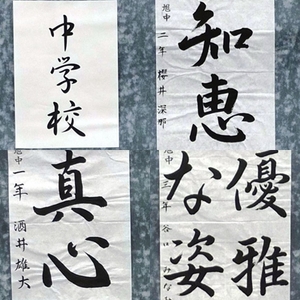 中学校
知恵
旭中 二年 櫻井深那
真心
旭中 一年 酒井雄大
優雅
な姿
旭中 三年 谷川みなみ